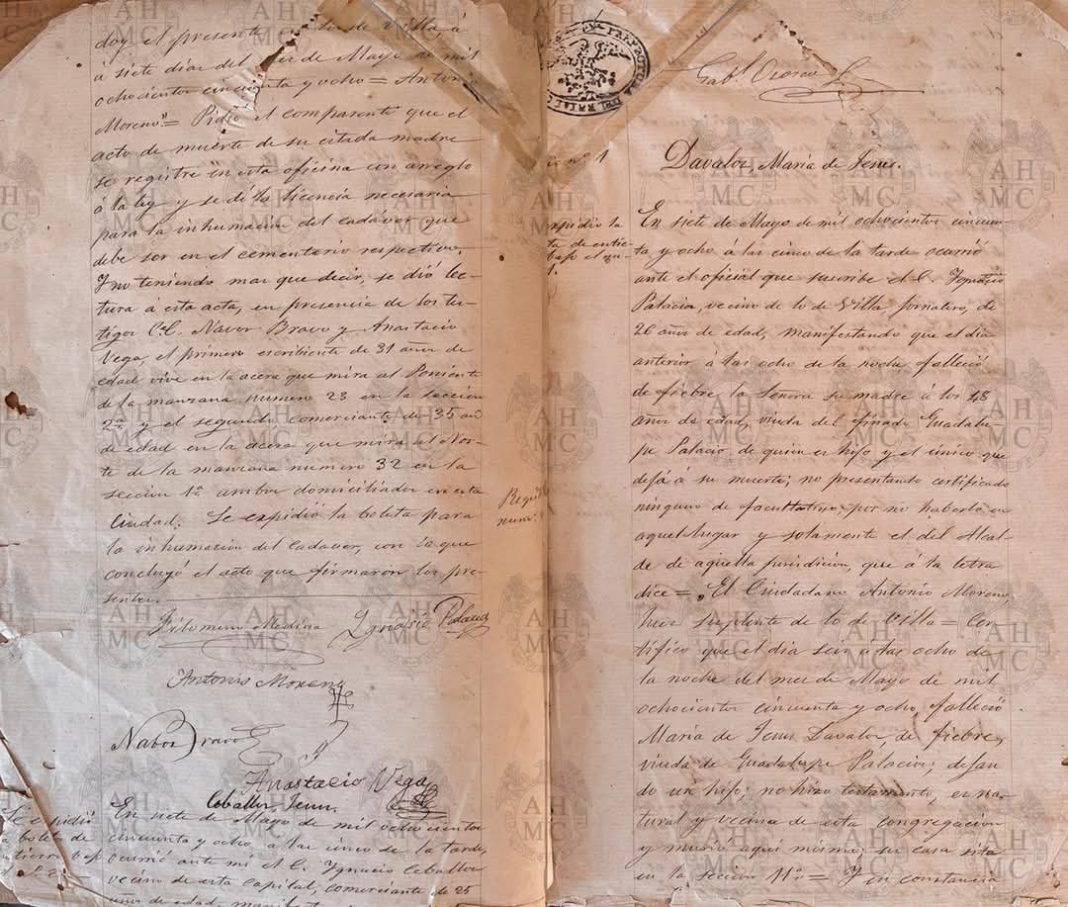 doy el presente de Villa, á
á siete dias del mes de Mayo de mil
ochocientos cincuenta y ocho = Antonio
Moreno" = Pidió el comparente que el
acto de muerte de su citada madre
se registre en esta oficina con arreglo
á la ley y se dé la licencia necesaria
para la inhumacion del cadaver que
debe ser en el cementerio respectivo.
Y no teniendo mas que decir, se dió lec-
tura á esta acta, en presencia de los tes-
tigos C.C. Navor Bravo y Anastacio
Vega, el primero escribiente de 31 años de
edad vive en la acera que mira al Poniente
de la manzana numero 23 en la seccion
2ª y el segundo comerciante de 35 años
de edad en la acera que mira al Nor-
te de la manzana numero 32 en la
seccion 1ª ambos domiciliados en esta
Ciudad. Se expidió la boleta para
la inhumacion del cadaver, con lo que
concluyó el acto que firmaron los pre-
sentes.
Filomeno Medina Ygnacio Palacio
Antonio Moreno
Nabor Bravo
Anastacio Vega
Ceballos, Jesus.
En siete de Mayo de mil ochocientos
cincuenta y ocho á las cinco de la tarde,
ocurrió ante mi el C. Ygnacio Ceballos
vecino de esta Capital, comerciante de 25
años de edad, manifestando
Se expidió
la boleta de
entierro bajo
Gabl Orosco
Davalos, Maria de Jesus.
nº 1
expidió la
ta de entie-
bajo el nº
1.
En siete de Mayo de mil ochocientos cincuen-
ta y ocho á las cinco de la tarde ocurrió
ante el oficial que suscribe el C. Ygnacio
Palacio, vecino de lo de Villa, jornalero, de
26 años de edad, manifestando que el dia
anterior á las ocho de la noche falleció
de fiebre la Señora su madre á los 48
años de edad, viuda del finado Guadalu-
pe Palacio de quien es hijo y el único que
dejó á su muerte; no presentando certificado
ninguno de facultativo por no haberlo en
aquel lugar y solamente el del Alcal-
de de aquella jurisdicion, que á la letra
dice = "El Ciudadano Antonio Moreno,
Juez suplente de lo de Villa = Cer-
tifico que el dia seis á las ocho de
la noche del mes de Mayo de mil
ochocientos cincuenta y ocho, falleció
Maria de Jesus Davalos, de fiebre,
viuda de Guadalupe Palacios; dejan-
do un hijo; no hizo testamento, es na-
tural y vecina de esta congregacion
y murió aqui mismo; su casa sita
en la seccion 11ª = Y en constancia